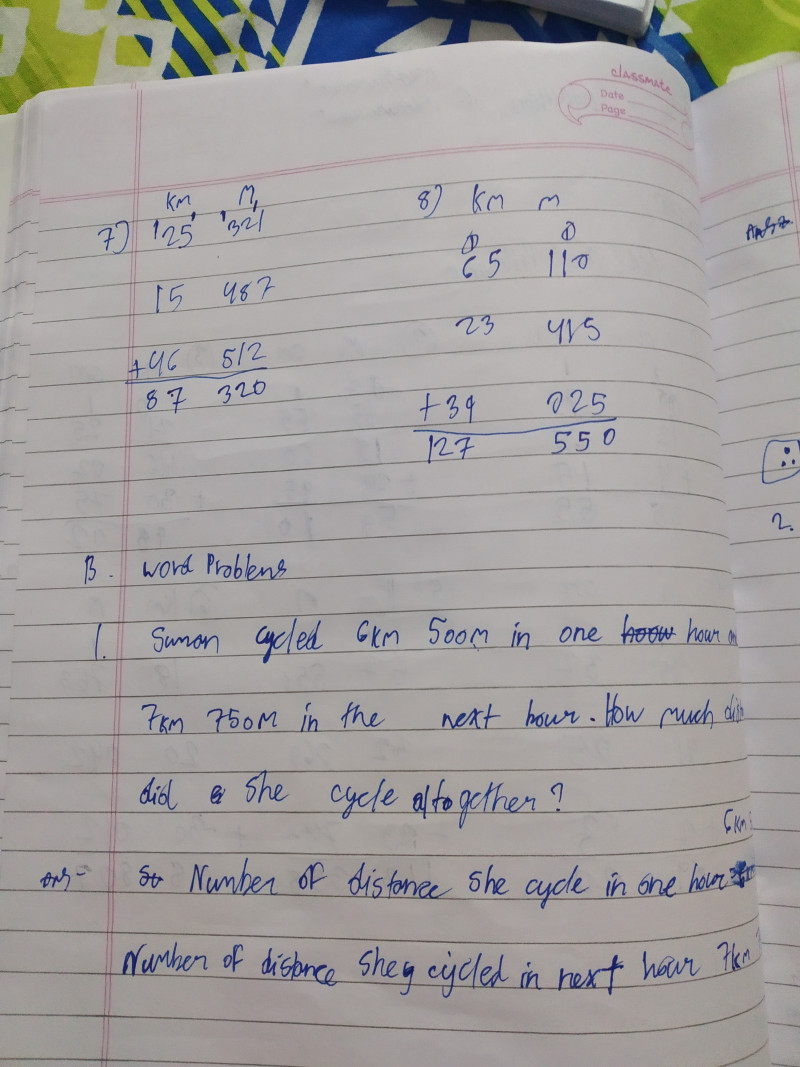 classmate
Date
Page
KM M
7) 25 321
15 487
+46 512
87 320
8) KM M
65 110
23 415
+39 025
127 550
B. Word Problems
1. Suman cycled 6KM 500M in one hour
7KM 750M in the next hour. How much
did she cycle altogether?
6KM
Ans- Number of distance she cycle in one hour
Number of distance she cycled in next hour 7km
2.